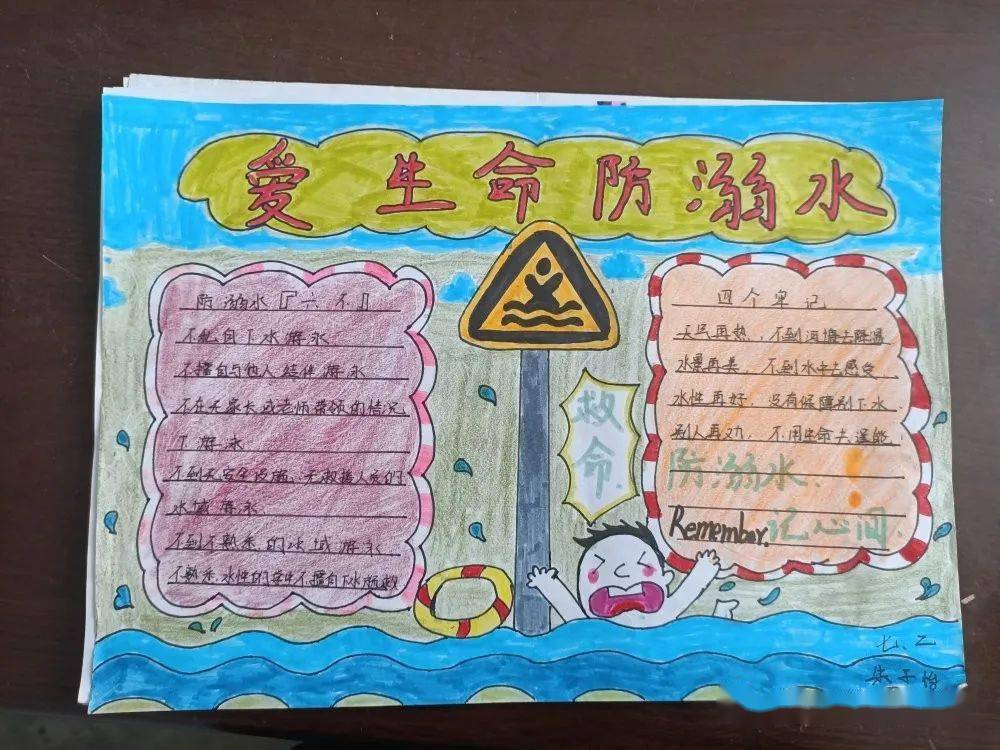 爱生命防溺水
防溺水『六不』
不私自下水游泳
不擅自与他人结伴游泳
不在无家长或老师带领的情况
下游泳
不到无安全设施、无救援人员的
水域游泳.
不到不熟悉的水域游泳
不熟悉水性的学生不擅自下水施救
救命
四个牢记
天气再热,不到河塘去降温
水景再美,不到水中去感受
水性再好,没有保障别下水.
别人再劝,不用生命去逞能.
防溺水.
Remember.记心间.
七、乙
朱子怡